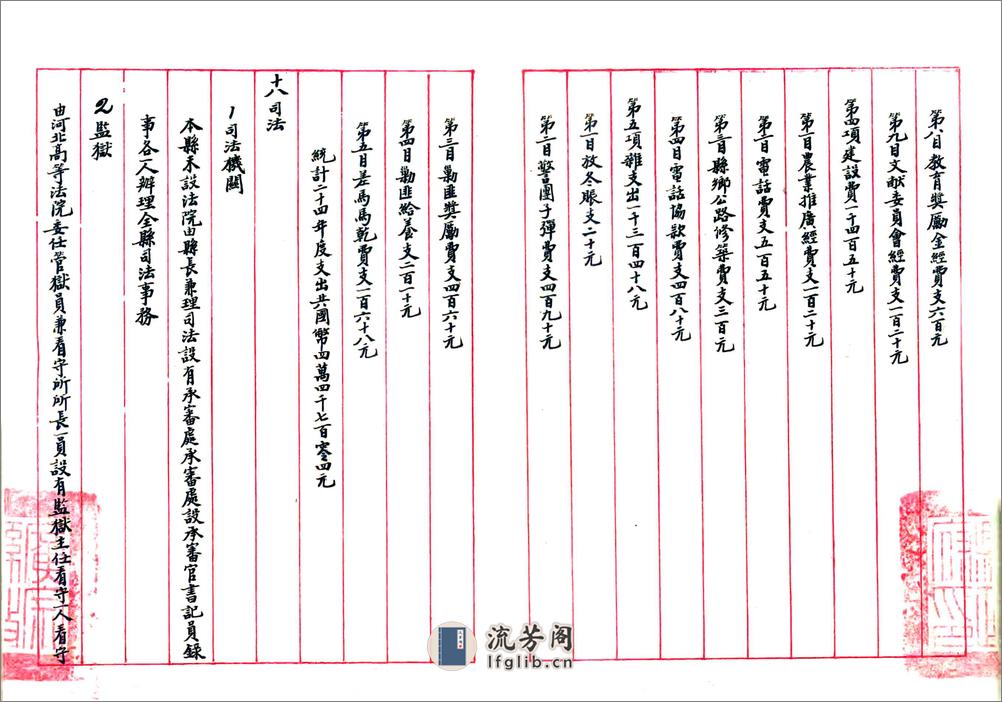 第八目教育獎勵金經費支六百元
第九目文献委員會經費支一百二十元
第四項建設費一千四百五十元
第一目農業推廣經費支一百二十元
第二目電話費支五百五十元
第三目縣鄉公路修築費支三百元
第四目電話協款費支四百八十元
第五項雜支出一千三百四十八元
第一目放冬賬支二十元
第二目警團子彈費支四百九十元
第三目勦匪獎勵費支四百六十元
第四目勦匪給養支二百一十元
第五目差馬馬乾費支一百六十八元
統計二十四年度支出共國幣四萬四千七百零四元
十八司法
1司法機關
本縣未設法院由縣長兼理司法設有承審處承審處設承審官書記員錄
事各一人辦理全縣司法事務
2監獄
由河北高等法院委任管獄員兼看守所所長一員設有監獄主任看守一人看守
流芳阁
lfglib.cn